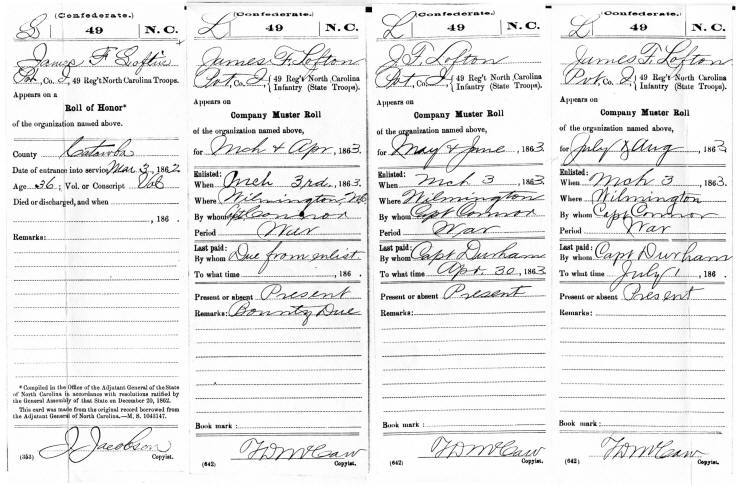 (Confederate.)
S 49 N. C.
James F Loftin
Pvt, Co. I, 49 Reg't North Carolina Troops.
Appears on a
Roll of Honor*
of the organization named above.
County Catawba
Date of entrance into service Mar. 3, 1862.
Age 36; Vol. or Conscript Vol
Died or discharged, and when
, 186 .
Remarks:
*Compiled in the Office of the Adjutant General of the State
of North Carolina in accordance with resolutions ratified by
the General Assembly of that State on December 20, 1862.
This card was made from the original record borrowed from
the Adjutant General of North Carolina.—M. S. 1043147.
J. Jacobson
(353) Copyist.
(Confederate.)
L 49 N. C.
James F. Lofton
Pvt, Co. I, 49 Reg't North Carolina
Infantry (State Troops).
Appears on
Company Muster Roll
of the organization named above,
for Mch & Apr, 1863.
Enlisted:
When Mch 3rd, 1863.
Where Wilmington, N.C.
By whom Capt Connor
Period War
Last paid:
By whom Due from enlist.
To what time , 186 .
Present or absent Present
Remarks: Bounty Due
Book mark :
(642) Copyist.
(Confederate.)
L 49 N. C.
J. F. Lofton
Pvt, Co. I, 49 Reg't North Carolina
Infantry (State Troops).
Appears on
Company Muster Roll
of the organization named above,
for May & June, 1863.
Enlisted:
When Mch 3, 1863.
Where Wilmington
By whom Capt Connor
Period War
Last paid:
By whom Capt Durham
To what time Apr. 30, 1863
Present or absent Present
Remarks:
Book mark :
(642) Copyist.
(Confederate.)
L 49 N. C.
James F. Lofton
Pvt, Co. I, 49 Reg't North Carolina
Infantry (State Troops).
Appears on
Company Muster Roll
of the organization named above,
for July & Aug, 1863
Enlisted:
When Mch 3, 1863.
Where Wilmington
By whom Capt Connor
Period War
Last paid:
By whom Capt Durham
To what time July 1, 186 .
Present or absent Present
Remarks:
Book mark :
(642) Copyist.